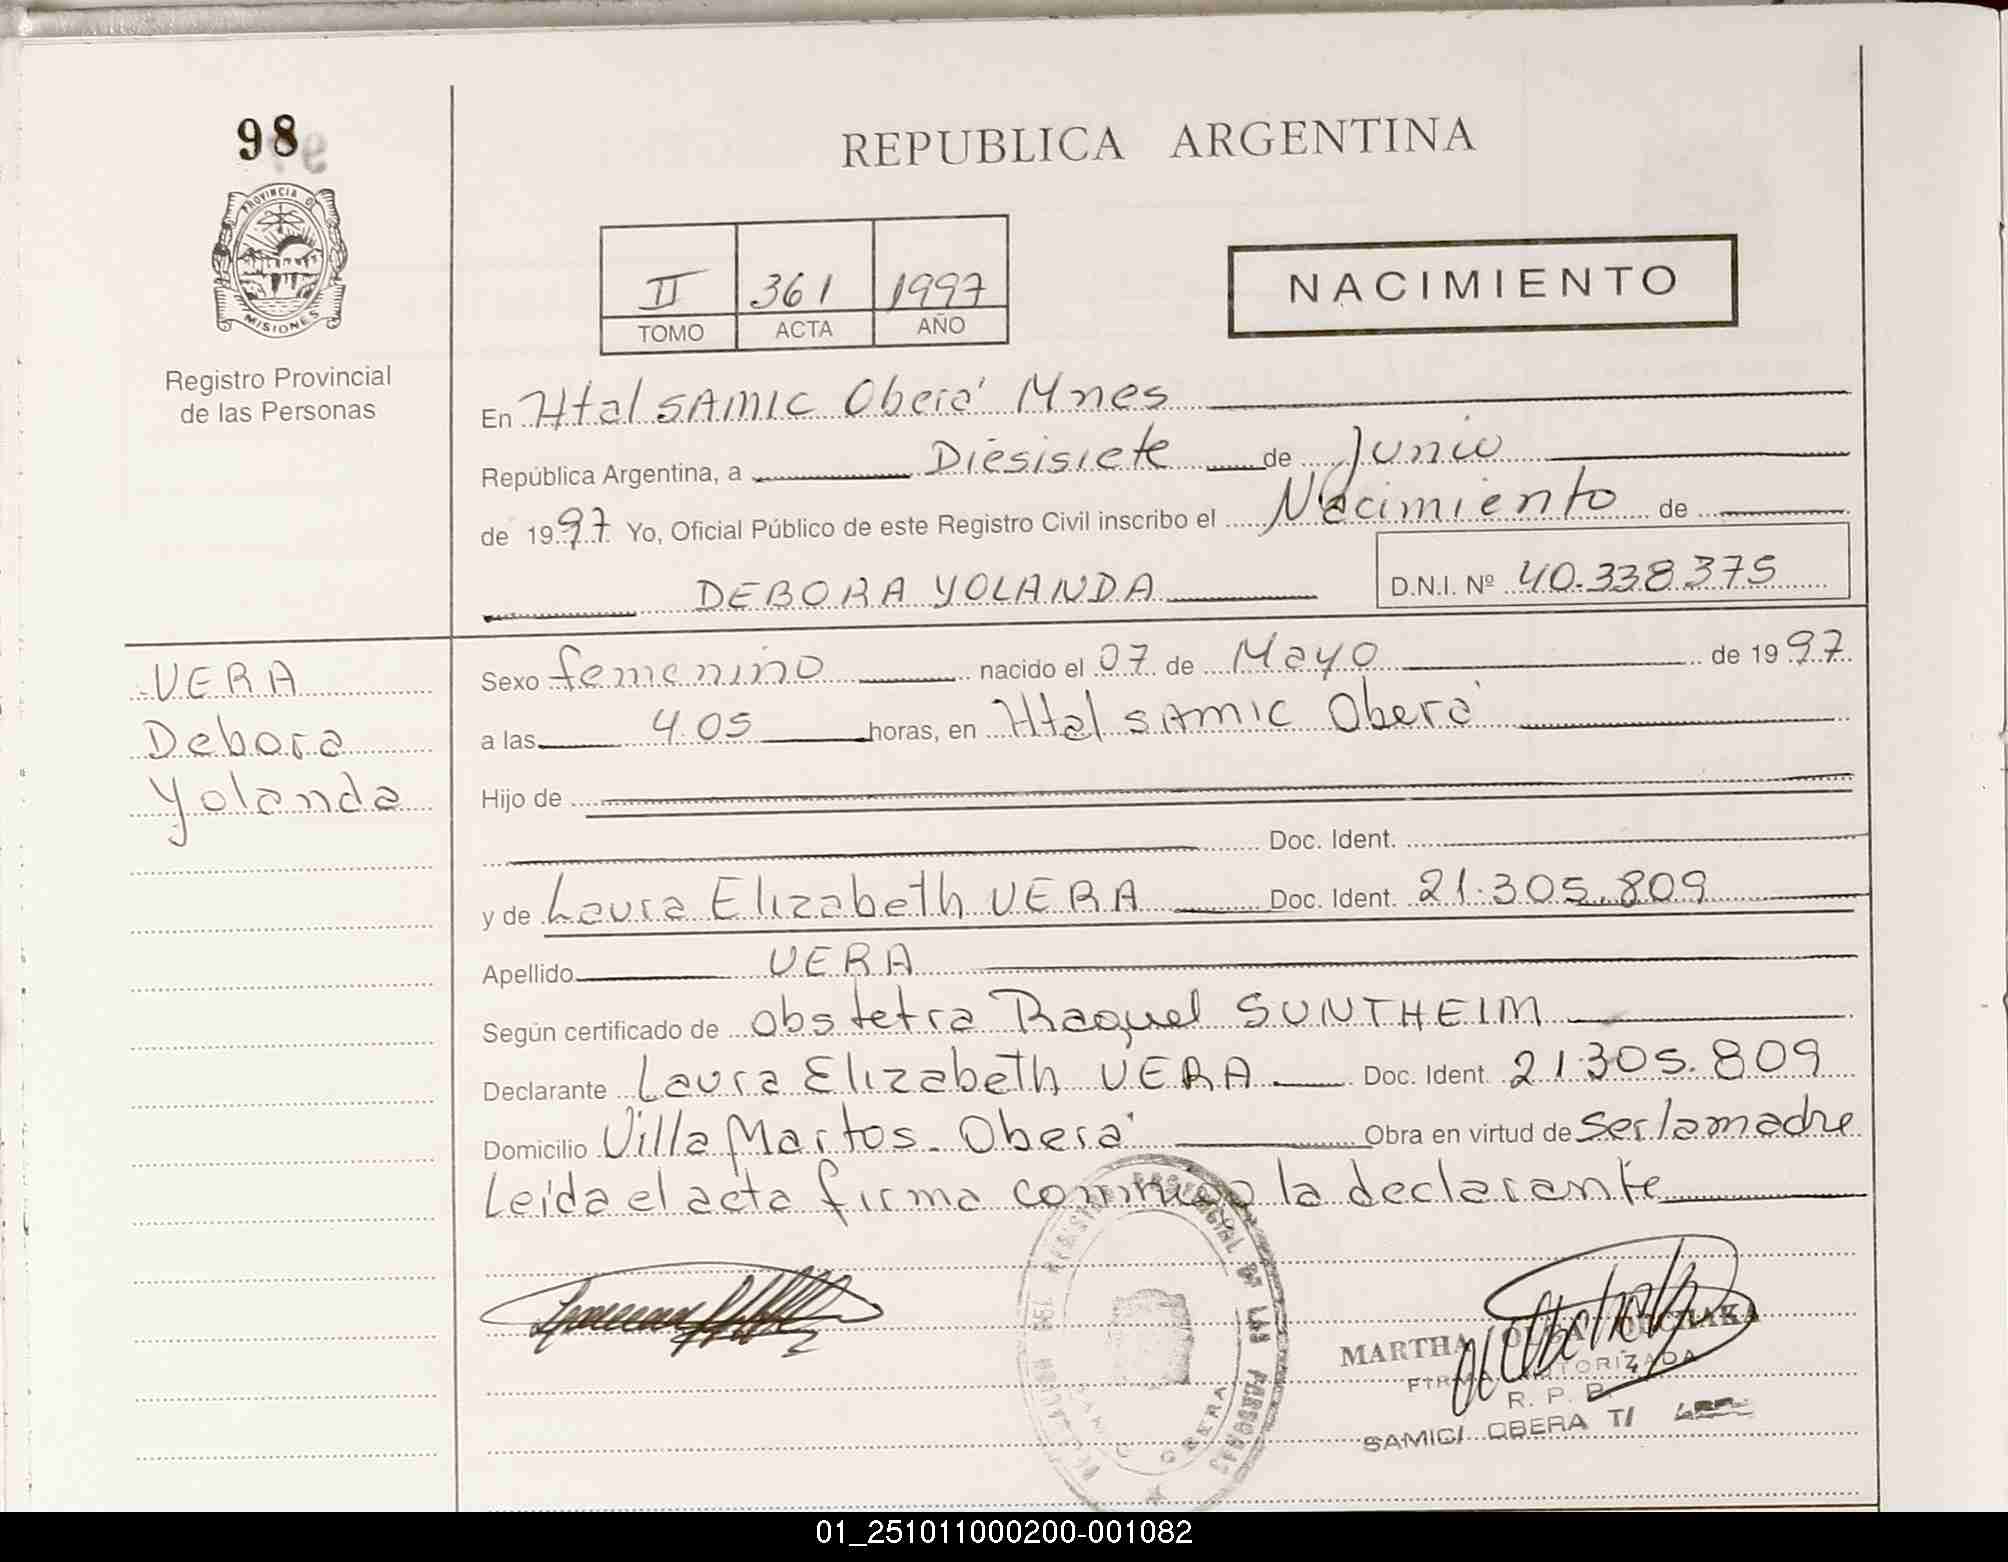 98
REPUBLICA ARGENTINA
PROVINCIA D
MISIONES
Registro Provincial
de las Personas
II 361 1997
TOMO ACTA AÑO
NACIMIENTO
En Htal SAMIC Oberá Mnes
República Argentina, a Diesisiete de Junio
de 1997 Yo, Oficial Público de este Registro Civil inscribo el Nacimiento de
DEBORA YOLANDA D.N.I. Nº 40.338.375
VERA
Debora
Yolanda
Sexo femenino nacido el 07 de Mayo de 1997
a las 4.05 horas, en Htal SAMIC Oberá
Hijo de
Doc. Ident.
y de Laura Elizabeth VERA Doc. Ident. 21.305.809
Apellido VERA
Según certificado de obstetra Raquel SUNTHEIM
Declarante Laura Elizabeth VERA Doc. Ident. 21.305.809
Domicilio Villa Martos - Oberá Obra en virtud de ser la madre
Leída el acta firma conmigo la declarante
PROVINCIAL DE LAS PERSONAS
OBERA
MARTHA
FIRMA AUTORIZADA
R. P. P.
SAMIC/ OBERA T/
01_251011000200-001082